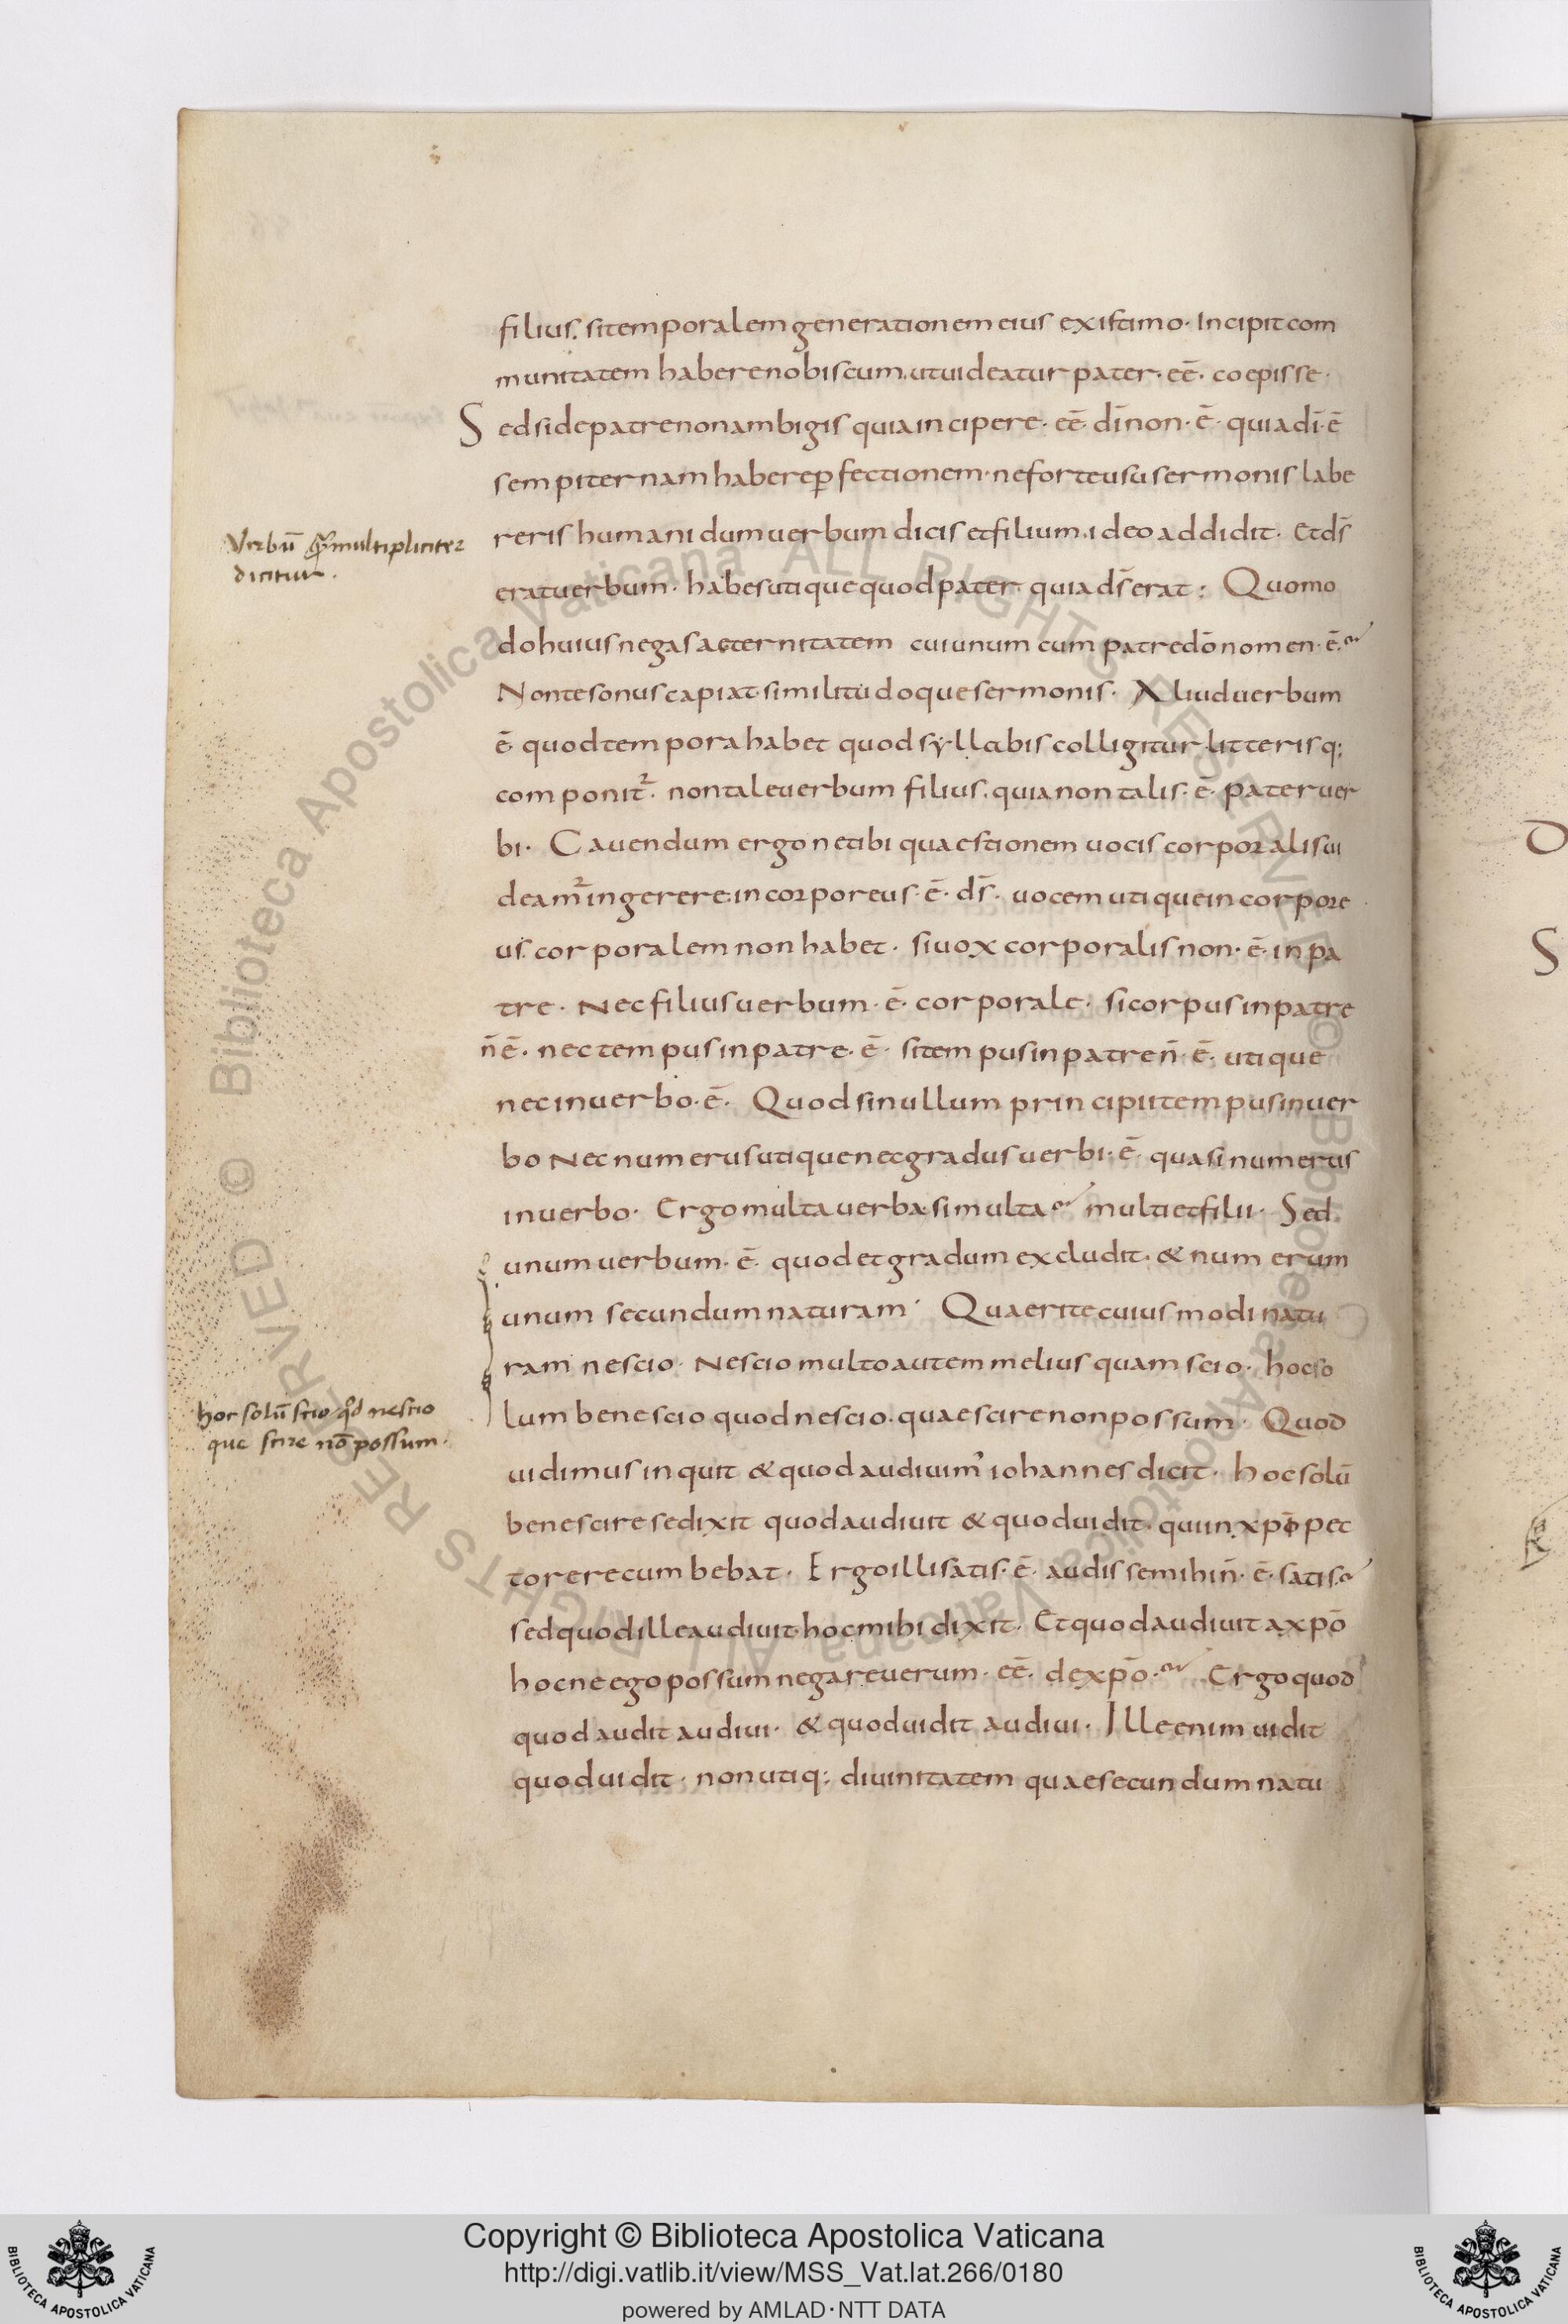 filius. si temporalem generationem eius existimo. Incipit com
munitatem habere nobiscum. ut uideatur pater. eē. coepisse.
Sed si de patre non ambigis quia incipere. eē. dī non. ē. quia dī. ē
sempiternam habere ꝑfectionem. ne forte usu sermonis labe
reris humani dum uerbum dicis et filium. ideo addidit. Et ds̄
erat uerbum. habes utique quod pater. quia ds̄ erat: Quomo
do huius negas aeternitatem cui unum cum patre dō nomen. ē.
Verbū multipliciter
dicitur.
Non te sonus capiat. similitudoque sermonis. Aliud uerbum
ē. quod tempora habet quod syllabis colligitur litterisq;
componit᷑. non tale uerbum filius. quia non talis. ē. pater uer
bi. Cauendum ergo ne tibi quaestionem uocis corporalis ui
deam᷑ ingerere. incorporeus. ē. ds̄. uocem utique incorpore
us. corporalem non habet. si uox corporalis non. ē. in pa
tre. Nec filius uerbum. ē. corporale. si corpus in patre
n̄ ē. nec tempus in patre. ē. si tempus in patre n̄. ē. utique
nec in uerbo. ē. Quod si nullum principii tempus in uer
bo Nec numerus utique nec gradus uerbi. ē. quasi numerus
in uerbo. Ergo multa uerba si multa multi et filii. Sed
unum uerbum. ē. quod et gradum excludit. & numerum
unum secundum naturam. Quaerite cuius modi natu
ram nescio. Nescio multo autem melius quam scio. hoc so
lum bene scio quod nescio. quae scire non possum. Quod
hoc solū scio qd nescio
que scire nō possum.
uidimus inquit & quod audiuim' iohannes dicit. hoc solū
bene scire se dixit quod audiuit & quod uidit. qui in xpō pec
tore recumbebat. Ergo illi satis. ē. audisse mihi n̄. ē. satis.
sed quod ille audiuit. hoc mihi dixit. Et quod audiuit a xpō
hoc ne ego possum negare uerum. eē. de xpō. Ergo quod
quod audit audiui. & quod uidit audiui. Ille enim uidit
quod uidit. non utiq; diuinitatem quae secundum natu
© Biblioteca Apostolica Vaticana ALL RIGHTS RESERVED © Biblioteca Apostolica Vaticana ALL RIGHTS RESERVED
BIBLIOTECA APOSTOLICA VATICANA
Copyright © Biblioteca Apostolica Vaticana
http://digi.vatlib.it/view/MSS_Vat.lat.266/0180
powered by AMLAD·NTT DATA
BIBLIOTECA APOSTOLICA VATICANA